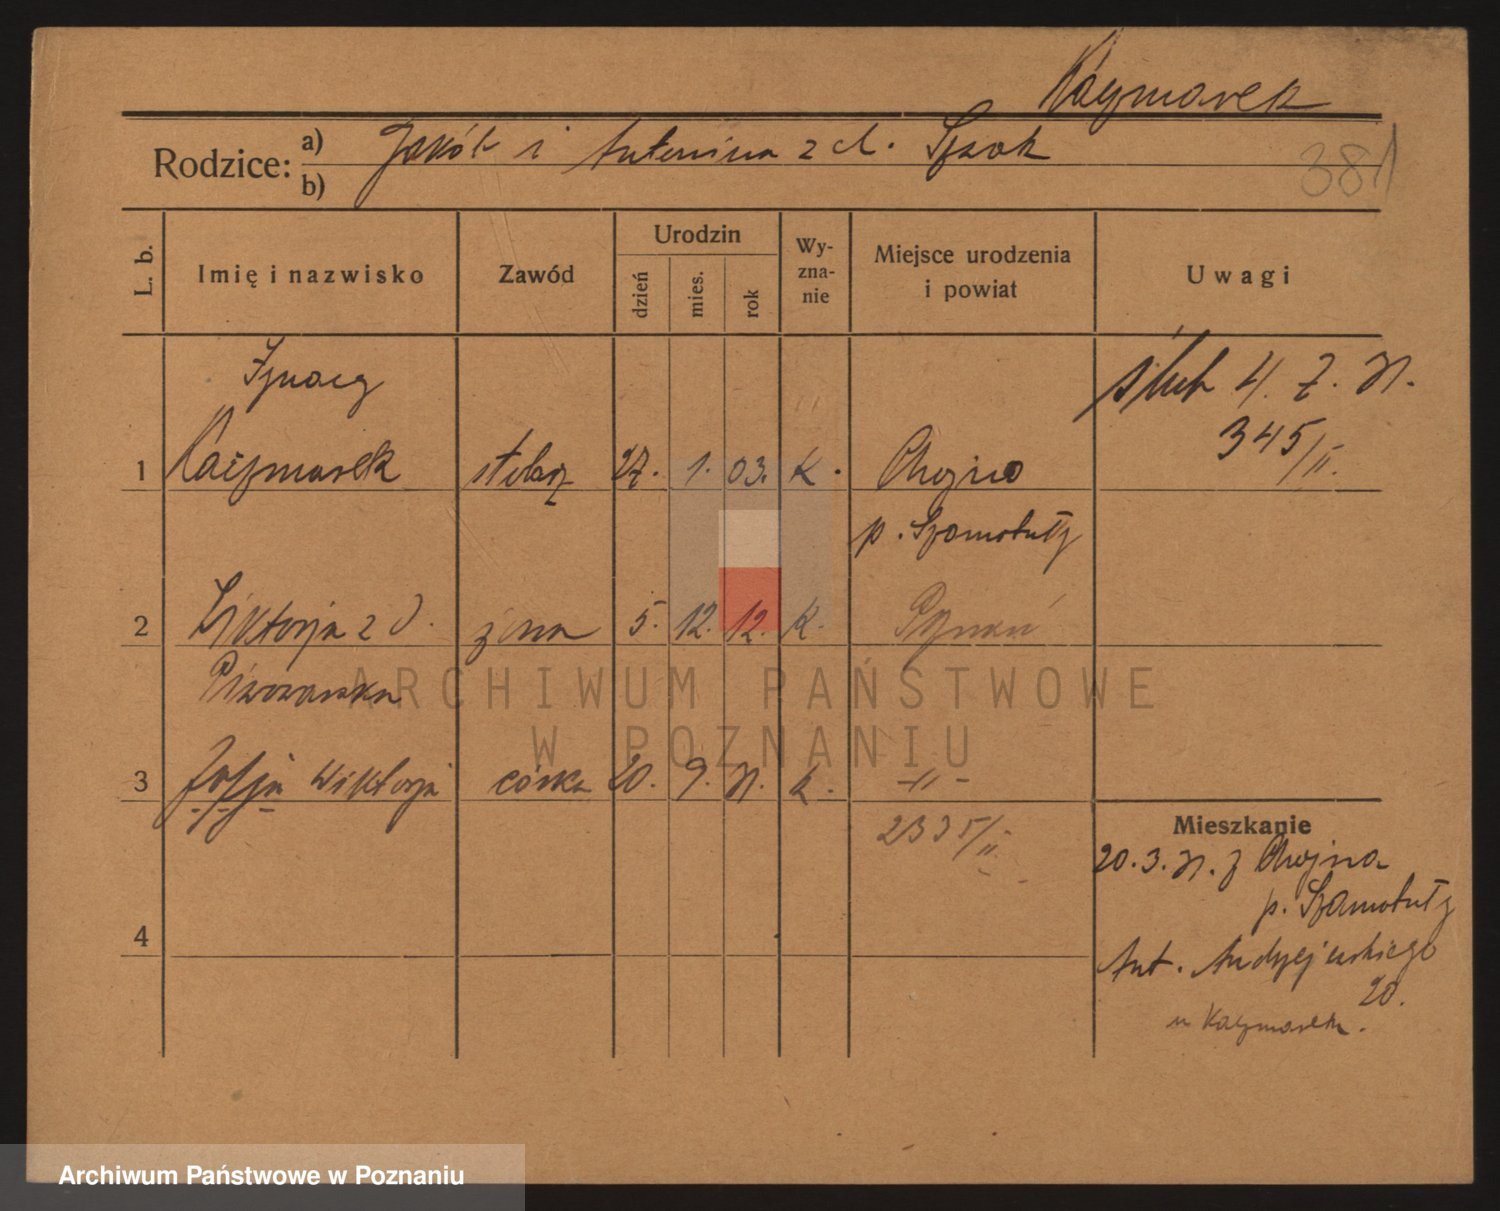 Kaczmarek
Rodzice: a) Jakób i Antonina z d. Szak
b)
381
L. b.
Imię i nazwisko
Zawód
Urodzin
dzień
mies.
rok
Wy-
zna-
nie
Miejsce urodzenia
i powiat
Uwagi
Ignacy
ślub 4. 7. 31.
345/II.
1 Kaczmarek stolarz 27. 1. 03. k. Chojno
p. Szamotuły
2 Wiktorja z d. żona 5. 12. 12. k. Poznań
Piwowarska
3 Zofja Wiktorja córka 20. 9. 31. k. -"-
2335/II.
4
Mieszkanie
20. 3. 31. z Chojna
p. Szamotuły
Ant. Andrzejewskiego
20.
u Kaczmarek.
ARCHIWUM PAŃSTWOWE
W POZNANIU
Archiwum Państwowe w Poznaniu